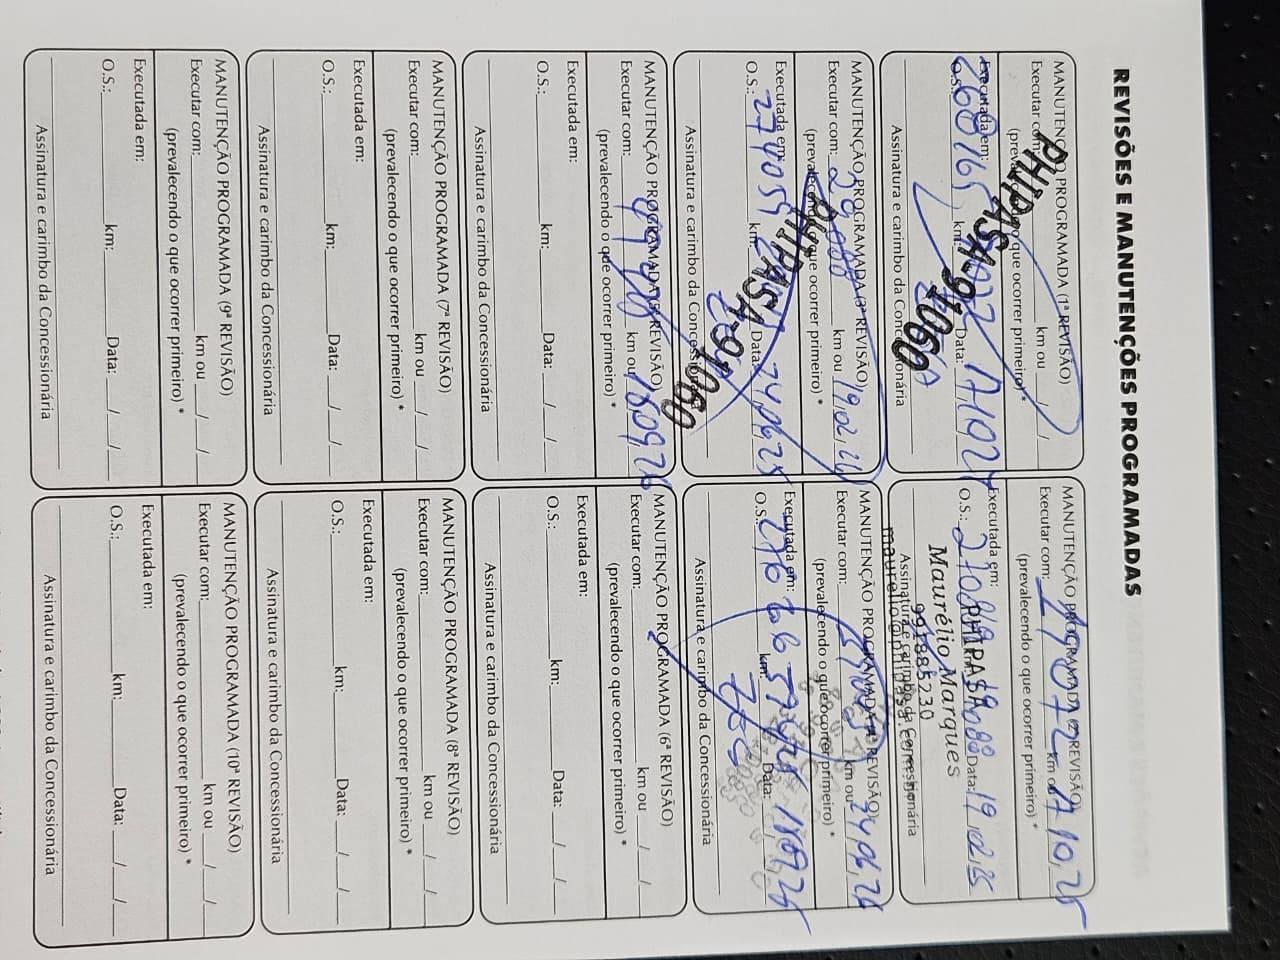 REVISÕES E MANUTENÇÕES PROGRAMADAS
MANUTENÇÃO PROGRAMADA (1ª REVISÃO)
Executar com: km ou / /
(prevalecendo o que ocorrer primeiro) *
PHIPASA-91060
Executada em:
O.S.: 268765 km: Data:
Assinatura e carimbo da Concessionária
MANUTENÇÃO PROGRAMADA (2ª REVISÃO)
Executar com: km ou
(prevalecendo o que ocorrer primeiro) *
Executada em:
O.S.: km: Data: 19/02/25
PHIPASA
Maurélio Marques
Assinatura e carimbo da Concessionária
991885230
maurelio@phipasa.com
MANUTENÇÃO PROGRAMADA (3ª REVISÃO)
Executar com: km ou 19/02/26
(prevalecendo o que ocorrer primeiro) *
PHIPASA-91060
Executada em:
O.S.: 274059 km: Data: 24/06/25
Assinatura e carimbo da Concessionária
MANUTENÇÃO PROGRAMADA (4ª REVISÃO)
Executar com: km ou 24/06/26
(prevalecendo o que ocorrer primeiro) *
Executada em:
O.S.: km: Data: 180925
Assinatura e carimbo da Concessionária
MANUTENÇÃO PROGRAMADA (5ª REVISÃO)
Executar com: km ou 180926
(prevalecendo o que ocorrer primeiro) *
Executada em:
O.S.: km: Data: / /
Assinatura e carimbo da Concessionária
MANUTENÇÃO PROGRAMADA (6ª REVISÃO)
Executar com: km ou / /
(prevalecendo o que ocorrer primeiro) *
Executada em:
O.S.: km: Data: / /
Assinatura e carimbo da Concessionária
MANUTENÇÃO PROGRAMADA (7ª REVISÃO)
Executar com: km ou / /
(prevalecendo o que ocorrer primeiro) *
Executada em:
O.S.: km: Data: / /
Assinatura e carimbo da Concessionária
MANUTENÇÃO PROGRAMADA (8ª REVISÃO)
Executar com: km ou / /
(prevalecendo o que ocorrer primeiro) *
Executada em:
O.S.: km: Data: / /
Assinatura e carimbo da Concessionária
MANUTENÇÃO PROGRAMADA (9ª REVISÃO)
Executar com: km ou / /
(prevalecendo o que ocorrer primeiro) *
Executada em:
O.S.: km: Data: / /
Assinatura e carimbo da Concessionária
MANUTENÇÃO PROGRAMADA (10ª REVISÃO)
Executar com: km ou / /
(prevalecendo o que ocorrer primeiro) *
Executada em:
O.S.: km: Data: / /
Assinatura e carimbo da Concessionária